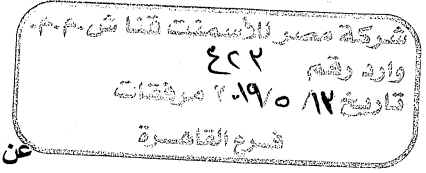 شركة مصر للأسمنت قنا ش.م.م.
وارد رقم ٤٢٣
تاريخ ١٣/ ٥ /٢٠١٩ مرفقات
فرع القاهرة
عن